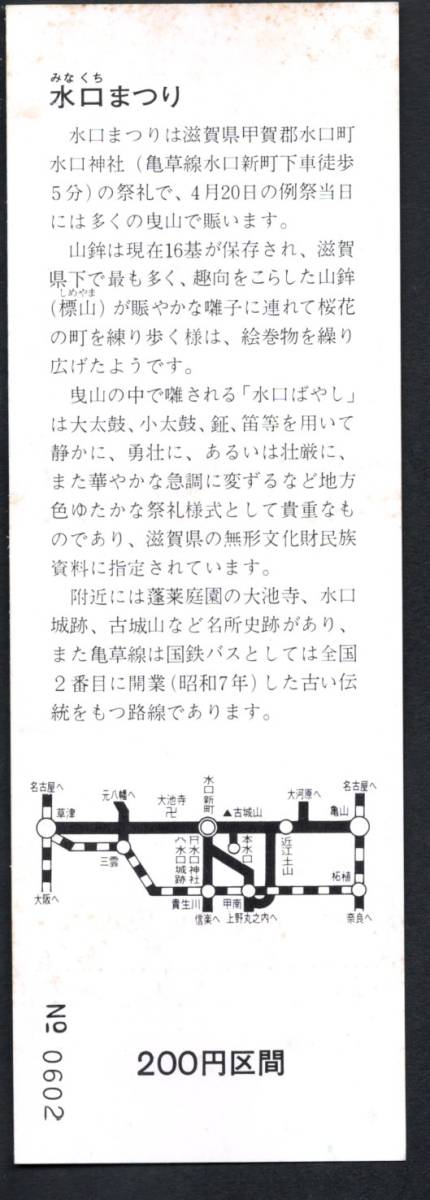 みなくち
水口まつり
水口まつりは滋賀県甲賀郡水口町
水口神社（亀草線水口新町下車徒歩
5分）の祭礼で、4月20日の例祭当日
には多くの曳山で賑います。
山鉾は現在16基が保存され、滋賀
県下で最も多く、趣向をこらした山鉾
しめやま
(標山)が賑やかな囃子に連れて桜花
の町を練り歩く様は、絵巻物を繰り
広げたようです。
曳山の中で囃される「水口ばやし」
は大太鼓、小太鼓、鉦、笛等を用いて
静かに、勇壮に、あるいは壮厳に、
また華やかな急調に変ずるなど地方
色ゆたかな祭礼様式として貴重なも
のであり、滋賀県の無形文化財民族
資料に指定されています。
附近には蓬莱庭園の大池寺、水口
城跡、古城山など名所史跡があり、
また亀草線は国鉄バスとしては全国
2番目に開業(昭和7年)した古い伝
統をもつ路線であります。
名古屋へ
元八幡へ
大池寺
卍
水口新町
▲古城山
大河原へ
名古屋へ
草津
亀山
三雲
水口神社
水口城跡
本水口
近江土山
大阪へ
貴生川
甲南
柘植
信楽へ
上野丸之内へ
奈良へ
200円区間
№ 0602